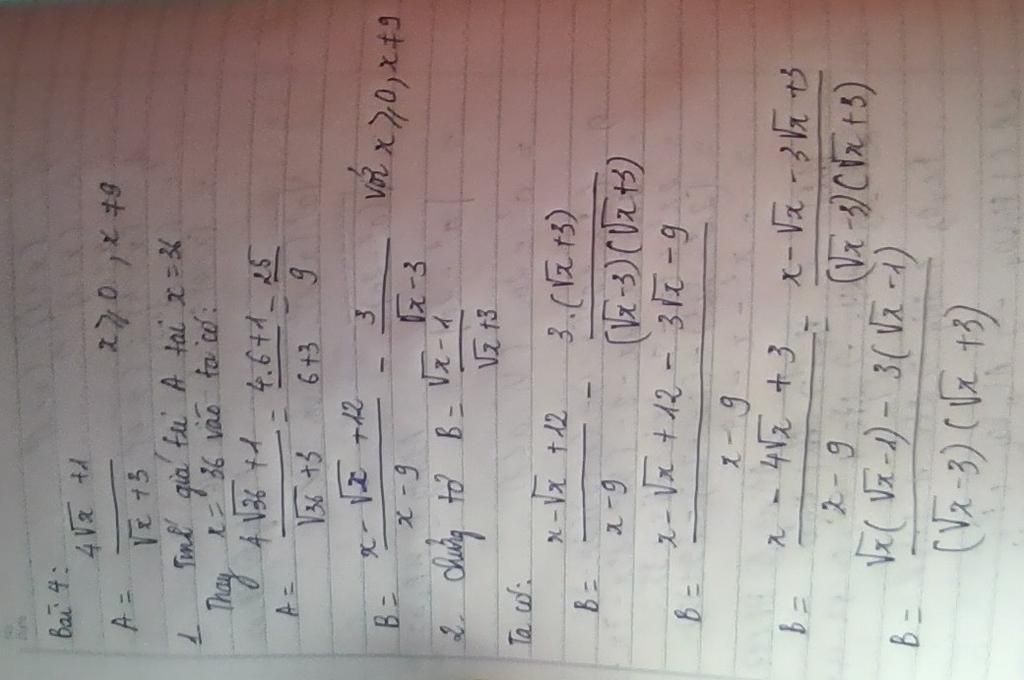 Bài 4:
A = 4√x + 1 / √x + 3 x ⩾ 0, x ≠ 9
1 Tính giá trị A tại x = 36
Thay x = 36 vào ta có:
A = 4√36 + 1 / √36 + 3 = 4.6 + 1 / 6 + 3 = 25 / 9
B = x - √x + 12 / x - 9 - 3 / √x - 3 với x ⩾ 0, x ≠ 9
2. Chứng tỏ B = √x - 1 / √x + 3
Ta có:
B = x - √x + 12 / x - 9 - 3.(√x + 3) / (√x - 3)(√x + 3)
B = x - √x + 12 - 3√x - 9 / x - 9
B = x - 4√x + 3 / x - 9 = x - √x - 3√x + 3 / (√x - 3)(√x + 3)
B = √x(√x - 1) - 3(√x - 1) / (√x - 3)(√x + 3)